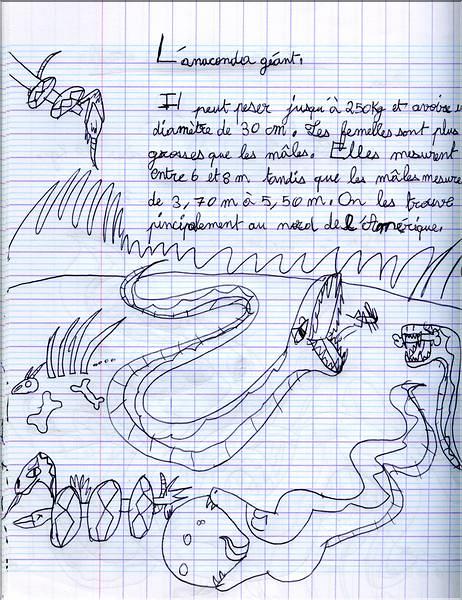 L'anaconda géant.
Il peut peser jusqu'à 250kg et avoir un
diamètre de 30 cm. Les femelles sont plus
grosses que les mâles. Elles mesurent
entre 6 et 8 m tandis que les mâles mesure
de 3,70 m à 5,50 m. On les trouve
pincipalement au nord de l'Amérique.